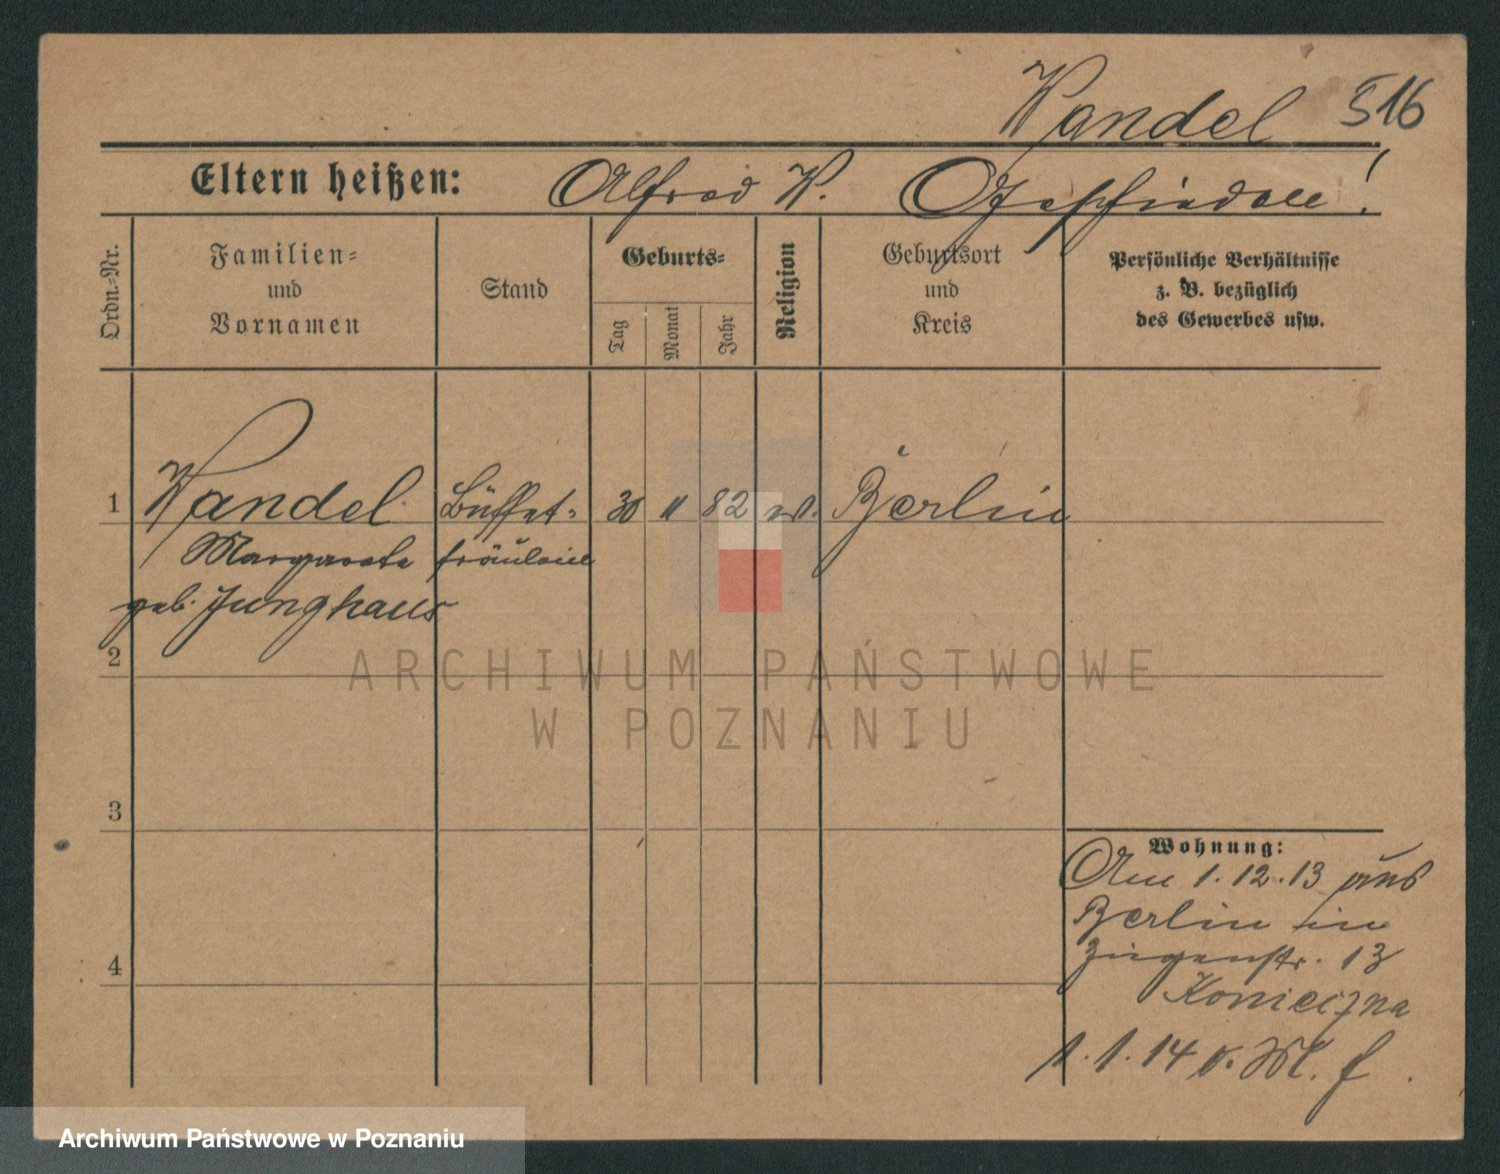 Wandel 516
Eltern heißen: Alfred W. Geschieden!
Ordn.-Nr.
Familien-
und
Vornamen
Stand
Geburts-
Tag
Monat
Jahr
Religion
Geburtsort
und
Kreis
Persönliche Verhältnisse
z. B. bezüglich
des Gewerbes usw.
1 Wandel Büffet- 30 11 82 ev. Berlin
Margarete fräulein
geb. Junghaus
2
ARCHIWUM PAŃSTWOWE
W POZNANIU
3
Wohnung:
Am 1.12.13 aus
Berlin in
Ziegenstr. 13
4
Konieczna
1.1.14 v. M. f
Archiwum Państwowe w Poznaniu